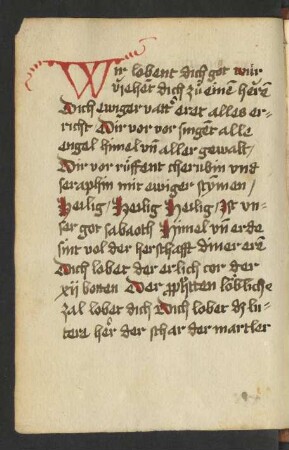 Wir lobent dich got wúr
veriehen dich zů einē herrē
Dich ewiger vatt' eret alles er-
trich Dir vor vor singēt alle
engel himel vñ aller gewalt /
Dir vor rüffent cherubin vnd
seraphin mit ewiger stymen /
Heilig / Heilig Heilig / Ist vn-
ser got sabaoth Himel vñ erde
sint vol der herschafft diner erē
Dich lobet der erlich cor der
xij botten Der pphetten lobliche
zal lobet dich Dich lobet dz lu-
tere her der schar der martler